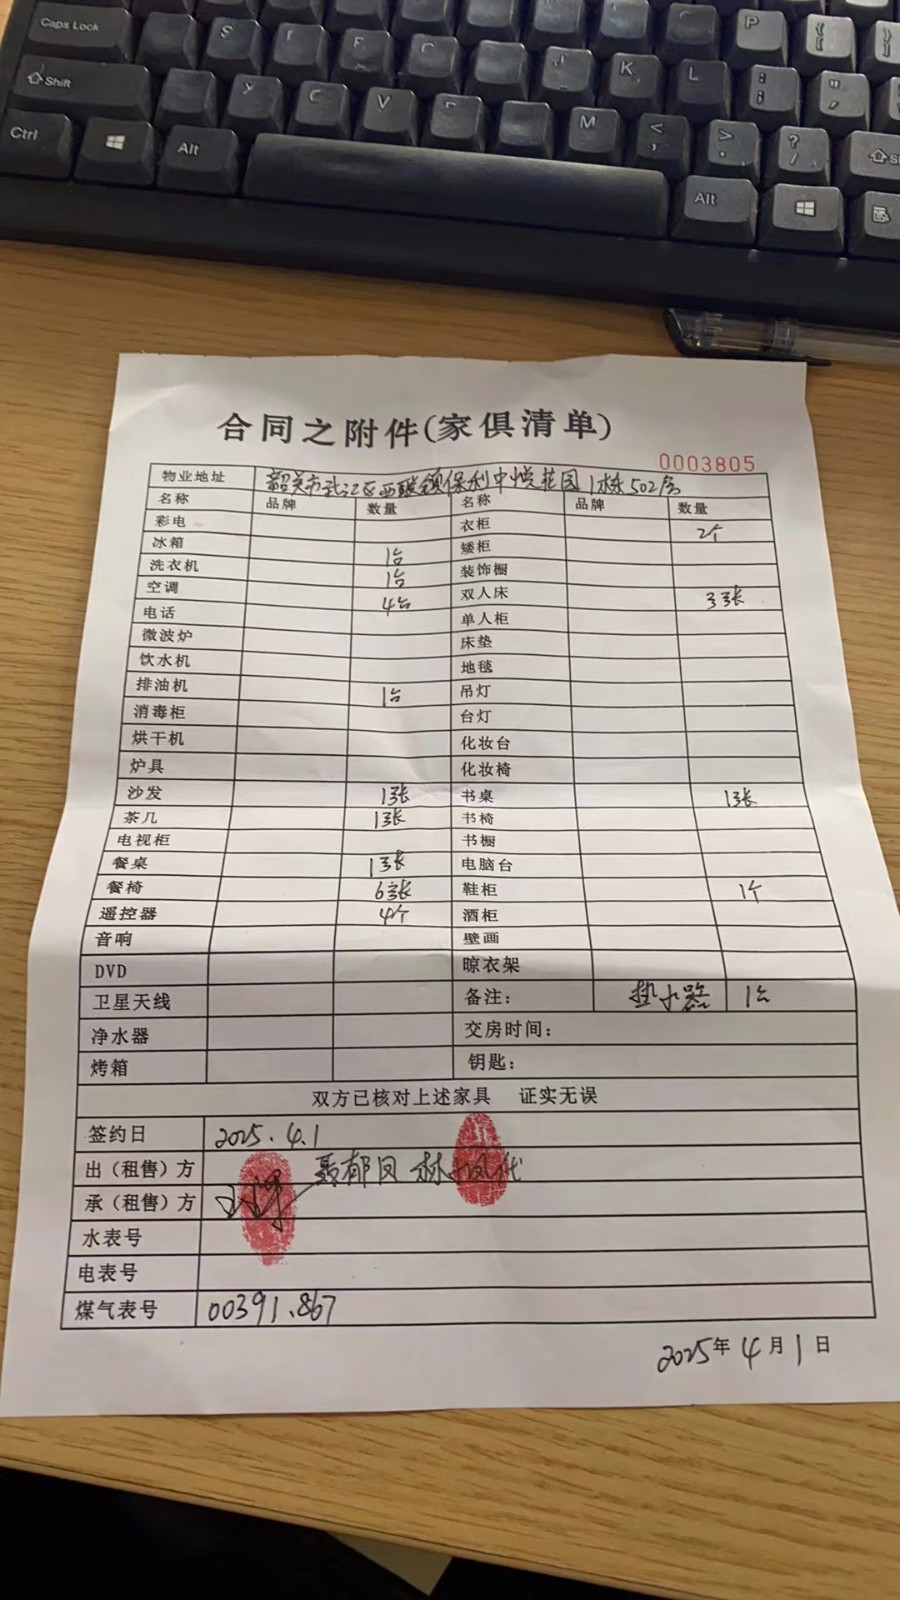 Caps Lock S F F G J K L P
Shift Y C V M
Ctrl Alt Alt
合同之附件(家俱清单)
0003805
物业地址 韶关市武江区西联镇保利中悦花园1栋502房
名称 品牌 数量 名称 品牌 数量
彩电 衣柜 2个
冰箱 1台 矮柜
洗衣机 1台 装饰橱
空调 4台 双人床 3张
电话 单人柜
微波炉 床垫
饮水机 地毯
排油机 1台 吊灯
消毒柜 台灯
烘干机 化妆台
炉具 化妆椅
沙发 1张 书桌 1张
茶几 1张 书椅
电视柜 书橱
餐桌 1张 电脑台
餐椅 6张 鞋柜 1个
遥控器 4个 酒柜
音响 壁画
DVD 晾衣架
卫星天线 备注: 热水器 1台
净水器 交房时间:
烤箱 钥匙:
双方已核对上述家具 证实无误
签约日 2025.4.1
出（租售）方
承（租售）方
水表号
电表号
煤气表号 00391.867
2025年4月1日